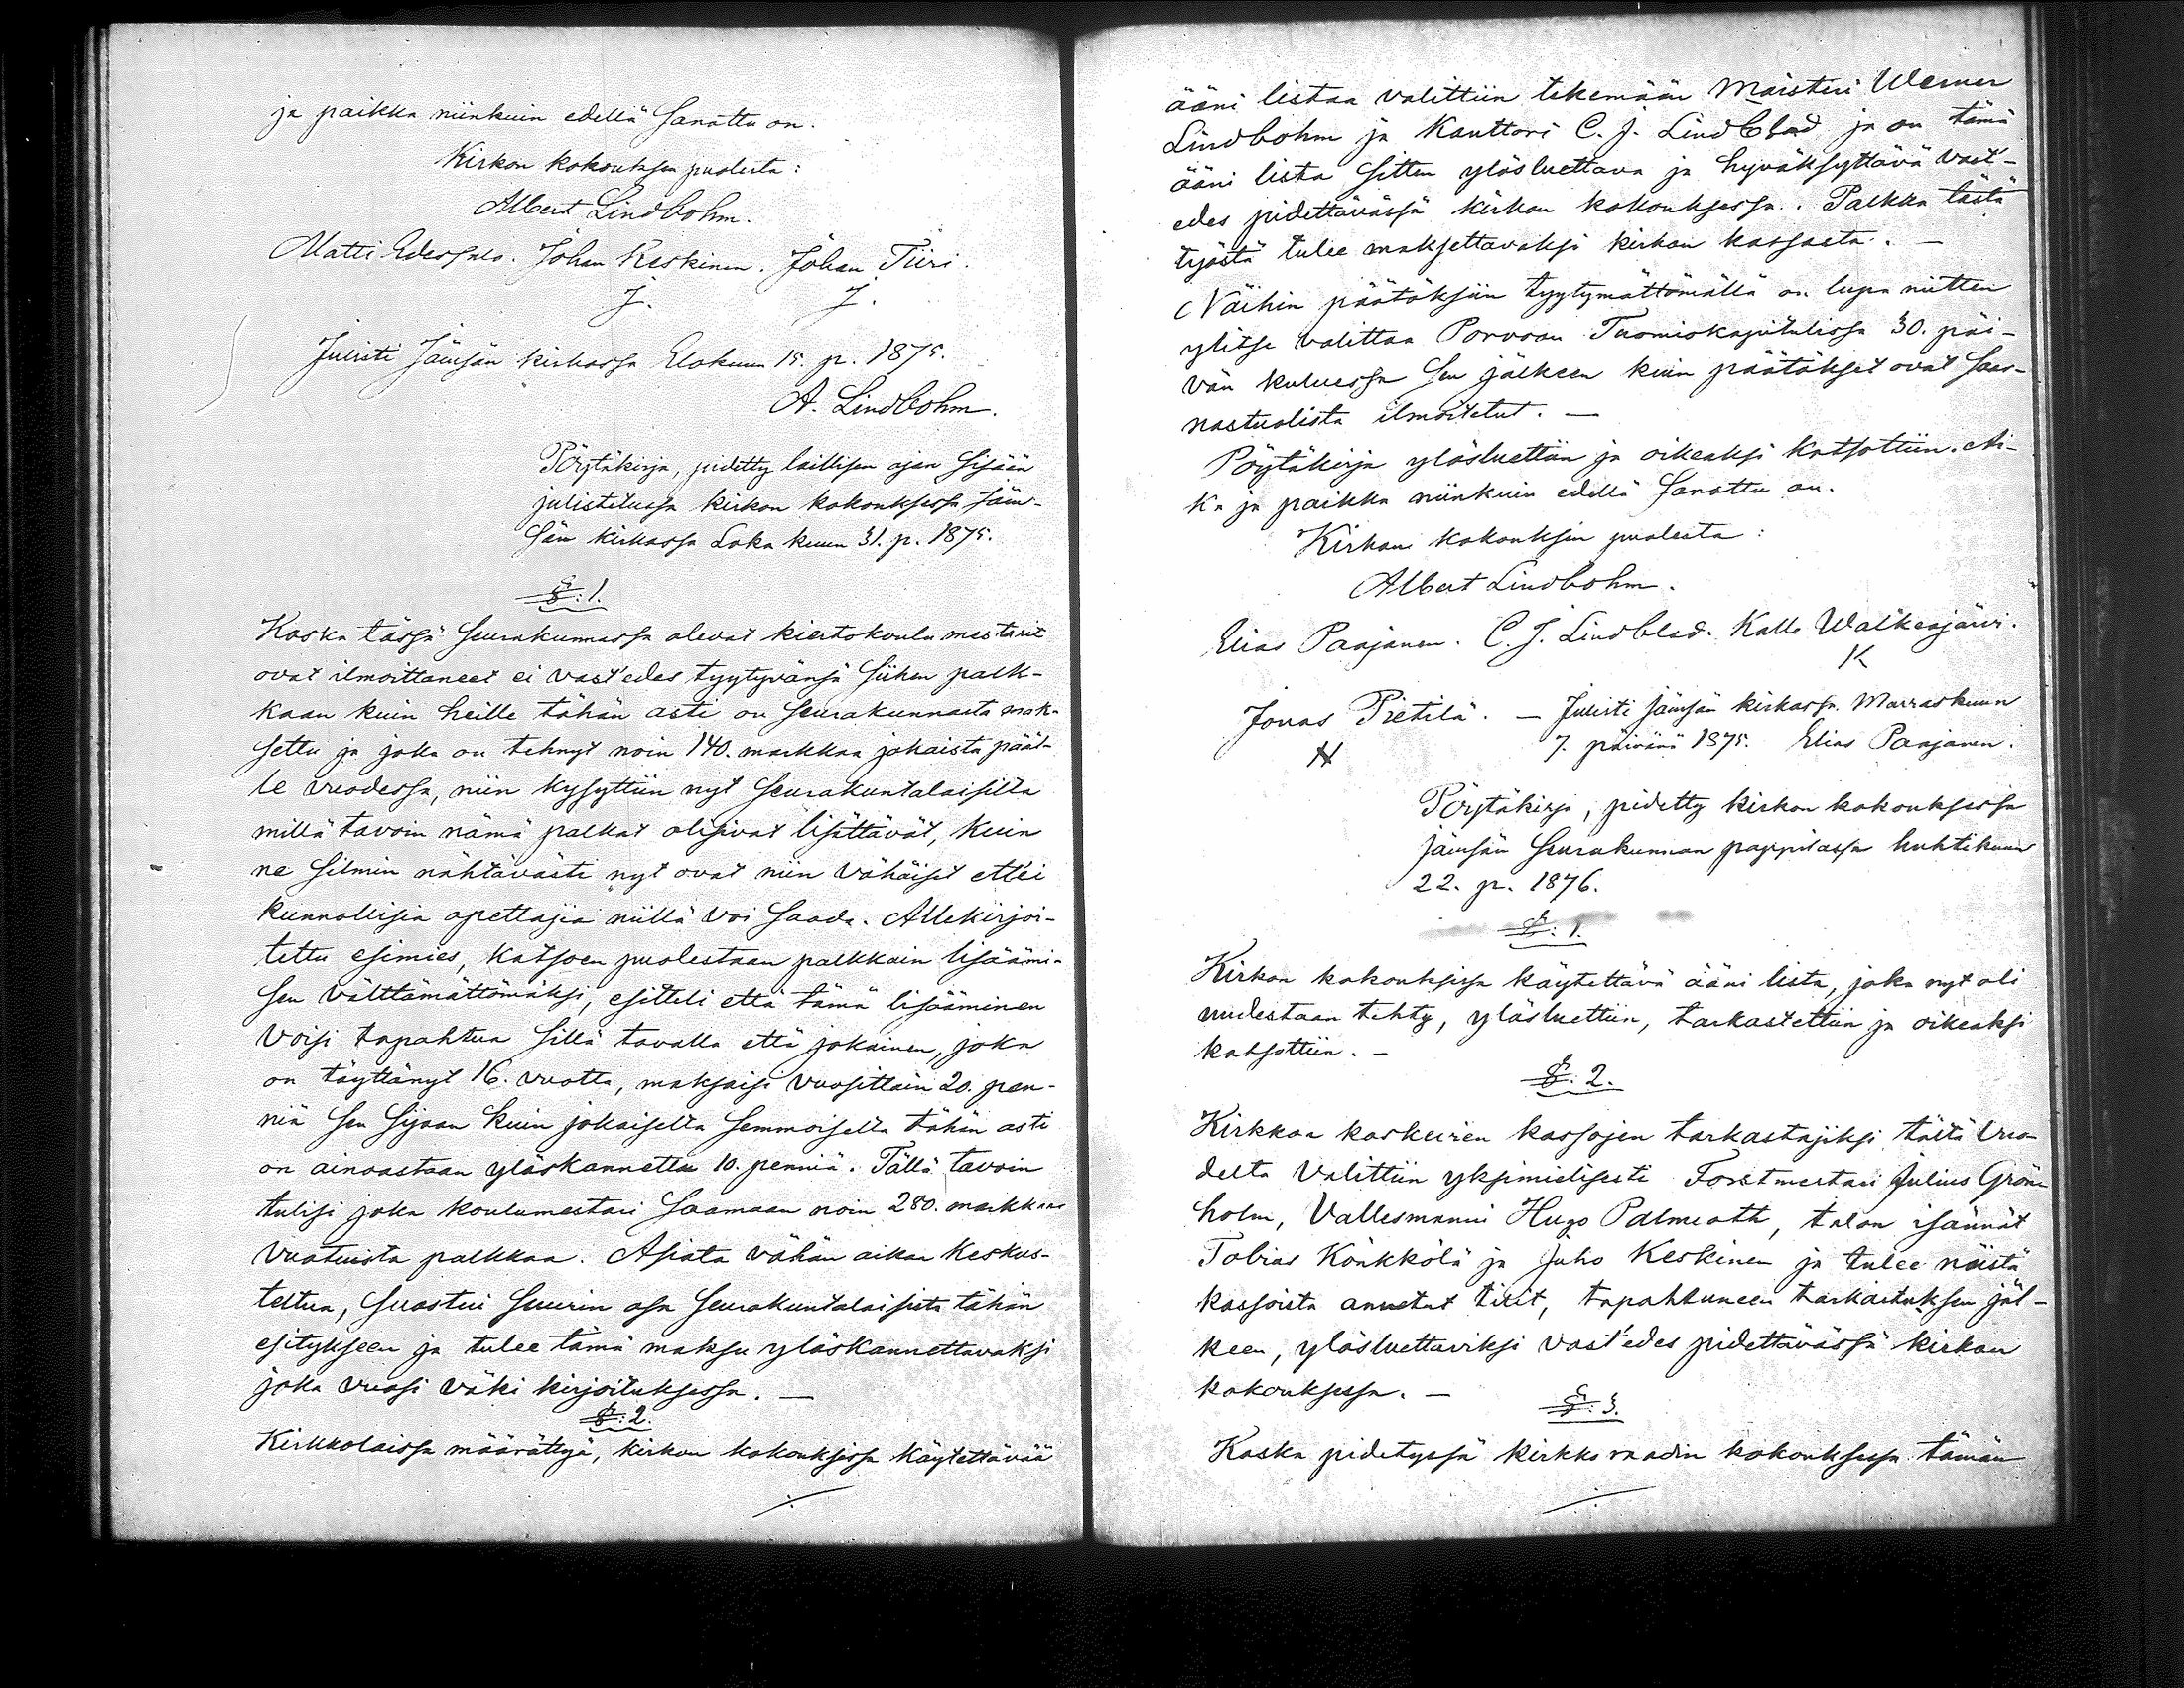 ja paikka niinkuin edellä sanottu on.
Kirkon kokouksen puolesta:
Albert Lindbohm.
Matti Edessalo. Johan Keskinen. Johan Tiiri.
J. J.
Julisti Jämsän kirkossa Elokuun 15. p. 1875.
A. Lindbohm.
Pöytäkirja, pidetty laillisen ajan sisään
julistetussa kirkon kokouksessa Jäm-
sän kirkossa Loka kuun 31. p. 1875.
§: 1.
Koska tässä seurakunnassa olevat kiertokoulu mestarit
ovat ilmoittaneet ei vast'edes tyytyvänsä siihen palk-
kaan kuin heille tähän asti on seurakunnasta mak-
settu ja joka on tehnyt noin 140. markkaa jokaista pääl-
le vuodessa, niin kysyttiin nyt seurakuntalaisilta
millä tavoin nämä palkat olisivat lisättävät, kuin
ne silmin nähtävästi nyt ovat niin vähäiset ett'ei
kunnollisia opettajia niillä voi saada. Allekirjoi-
tettu esimies, katsoen puolestaan palkkain lisäämi-
sen välttämättömäksi, esitteli että tämä lisääminen
voisi tapahtua sillä tavalla että jokainen, joka
on täyttänyt 16. vuotta, maksaisi vuosittain 20. pen-
niä sen sijaan kuin jokaiselta semmoiselta tähän asti
on ainoastaan yläskannettu 10. penniä. Tällä tavoin
tulisi joka koulumestari saamaan noin 280. markkaa
vuotuista palkkaa. Asiata vähän aikaa keskus-
teltua, suostui suurin osa seurakuntalaisista tähän
esitykseen ja tulee tämä maksu yläskannettavaksi
joka vuosi väki kirjoituksessa. —
§: 2.
Kirkkolaissa määrättyä, kirkon kokouksissa käytettävää
ääni listaa valittiin tekemään Maisteri Werner
Lindbohm ja Kanttori C. J. Lindblad ja on tämä
ääni lista sitten ylösluettava ja hyväksyttävä vast'-
edes pidettävässä kirkon kokouksessa. Palkka tästä
työstä tulee maksettavaksi kirkon kassasta. —
Näihin päätöksiin tyytymättömällä on lupa niitten
ylitse valittaa Porvoon Tuomiokapitulissa 30. päi-
vän kuluessa sen jälkeen kuin päätökset ovat saar-
nastuolista ilmoitetut. —
Pöytäkirja ylösluettiin ja oikeaksi katsottiin. Ai-
ka ja paikka niinkuin edellä sanottu on.
Kirkon kokouksen puolesta:
Albert Lindbohm.
Elias Paajanen. C. J. Lindblad. Kalle Walkeajärvi.
K
Jonas Pietilä. — Julisti Jämsän kirkossa Marraskuun
7. päivänä 1875. Elias Paajanen.
Pöytäkirja, pidetty kirkon kokouksessa
Jämsän seurakunnan pappilassa huhtikuun
22. p. 1876.
§: 1.
Kirkon kokouksissa käytettävä ääni lista, joka nyt oli
uudestaan tehty, ylösluettiin, tarkastettiin ja oikeaksi
katsottiin. —
§: 2.
Kirkkoa koskevien kassojen tarkastajiksi tältä vuo-
delta valittiin yksimielisesti Forstmestari Julius Grön-
holm, Vallesmanni Hugo Palmroth, talon isännät
Tobias Könkkölä ja Juho Keskinen ja tulee näistä
kassoista annetut tilit, tapahtuneen tarkastuksen jäl-
keen, ylösluettaviksi vast'edes pidettävässä kirkon
kokouksessa. —
§: 3.
Koska pidetyssä kirkko raadin kokouksessa tämän